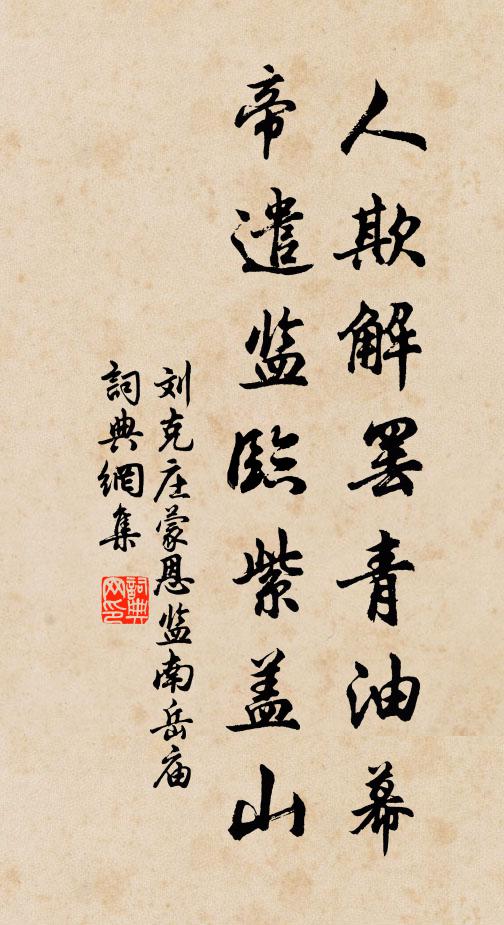 人欺解罢青油幕
帝遣监临紫盖山
刘克庄蒙恩监南岳庙
詞典網集
詞典网印